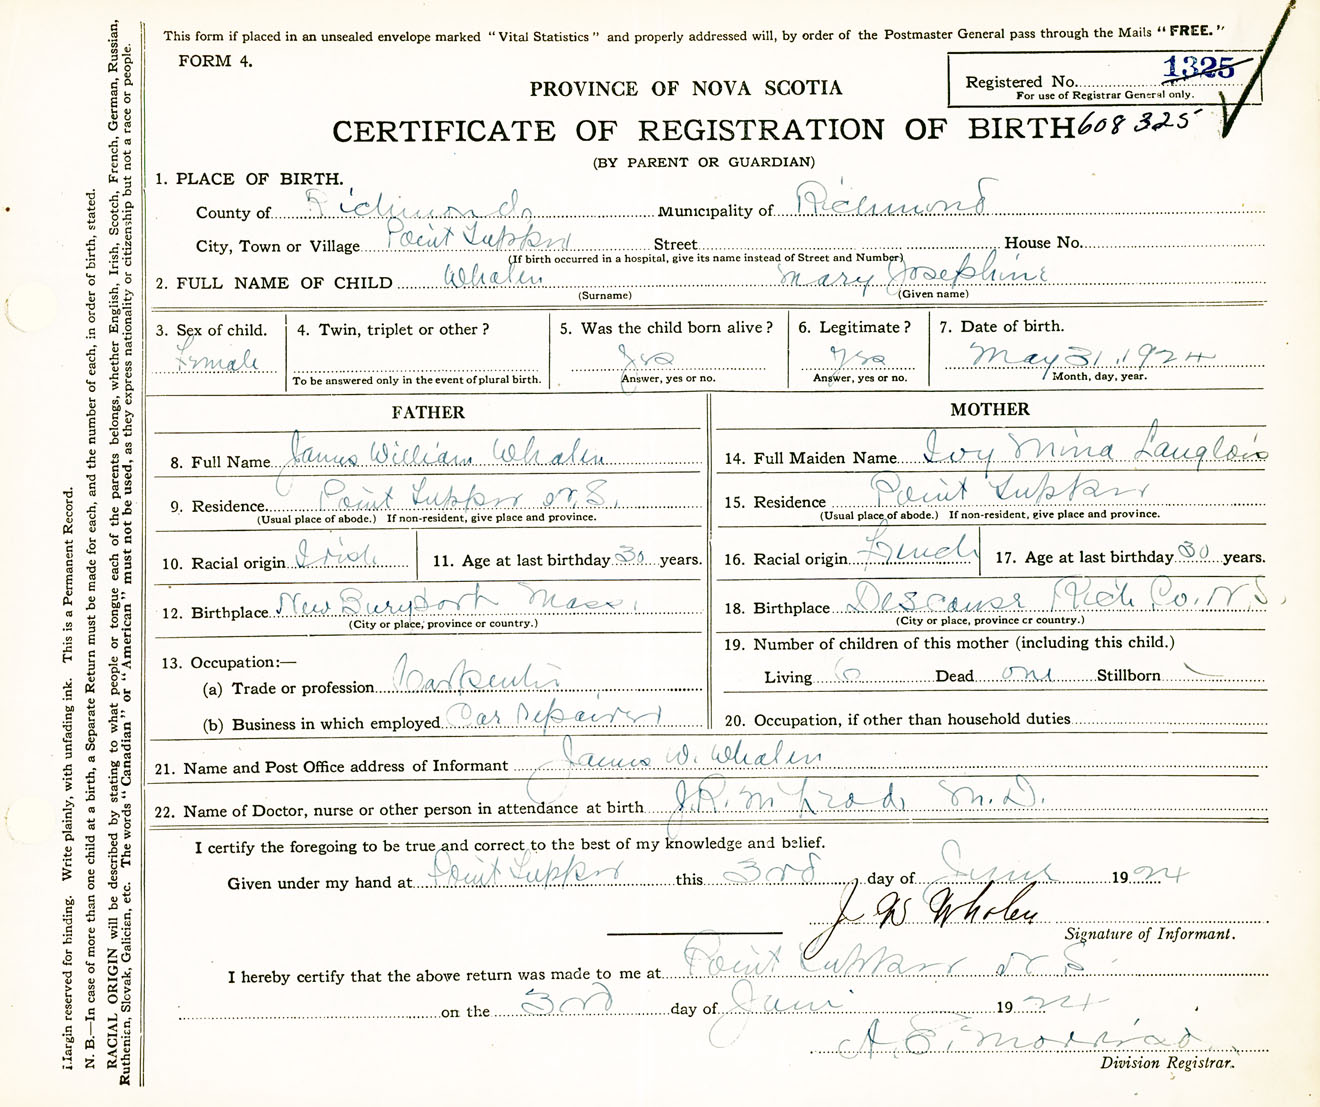 This form if placed in an unsealed envelope marked "Vital Statistics" and properly addressed will, by order of the Postmaster General pass through the Mails "FREE."
FORM 4.
Registered No. 1325
For use of Registrar General only.
PROVINCE OF NOVA SCOTIA
CERTIFICATE OF REGISTRATION OF BIRTH 608325
(BY PARENT OR GUARDIAN)
1. PLACE OF BIRTH.
County of Richmond Municipality of Richmond
City, Town or Village Point Tupper Street House No.
(If birth occurred in a hospital, give its name instead of Street and Number)
2. FULL NAME OF CHILD Whalen Mary Josephine
(Surname) (Given name)
3. Sex of child. 4. Twin, triplet or other? 5. Was the child born alive? 6. Legitimate? 7. Date of birth.
Female Yes Yes May 31, 1924
To be answered only in the event of plural birth. Answer, yes or no. Answer, yes or no. Month, day, year.
FATHER
8. Full Name James William Whalen
9. Residence Point Tupper N.S.
(Usual place of abode.) If non-resident, give place and province.
10. Racial origin Irish 11. Age at last birthday 30 years.
12. Birthplace New Buryport Mass.
(City or place, province or country.)
13. Occupation:—
(a) Trade or profession Carpenter
(b) Business in which employed Car repairer
MOTHER
14. Full Maiden Name Ivy Mina Langlois
15. Residence Point Tupper
(Usual place of abode.) If non-resident, give place and province.
16. Racial origin French 17. Age at last birthday 30 years.
18. Birthplace Descouse Rich Co. N.S.
(City or place, province or country.)
19. Number of children of this mother (including this child.)
Living 6 Dead one Stillborn
20. Occupation, if other than household duties
21. Name and Post Office address of Informant James W. Whalen
22. Name of Doctor, nurse or other person in attendance at birth J.R. M.D.
I certify the foregoing to be true and correct to the best of my knowledge and belief.
Given under my hand at Point Tupper this 3rd day of June 1924
J W Whalen
Signature of Informant.
I hereby certify that the above return was made to me at Point Tupper N.S.
on the 3rd day of June 1924
A.
Division Registrar.
Margin reserved for binding. Write plainly, with unfading ink. This is a Permanent Record.
N. B.—In case of more than one child at a birth, a Separate Return must be made for each, and the number of each, in order of birth, stated.
RACIAL ORIGIN will be described by stating to what people or tongue each of the parents belongs, whether English, Irish, Scotch, French, German, Russian,
Ruthenian, Slovak, Galician, etc. The words "Canadian" or "American" must not be used, as they express nationality or citizenship but not a race or people.